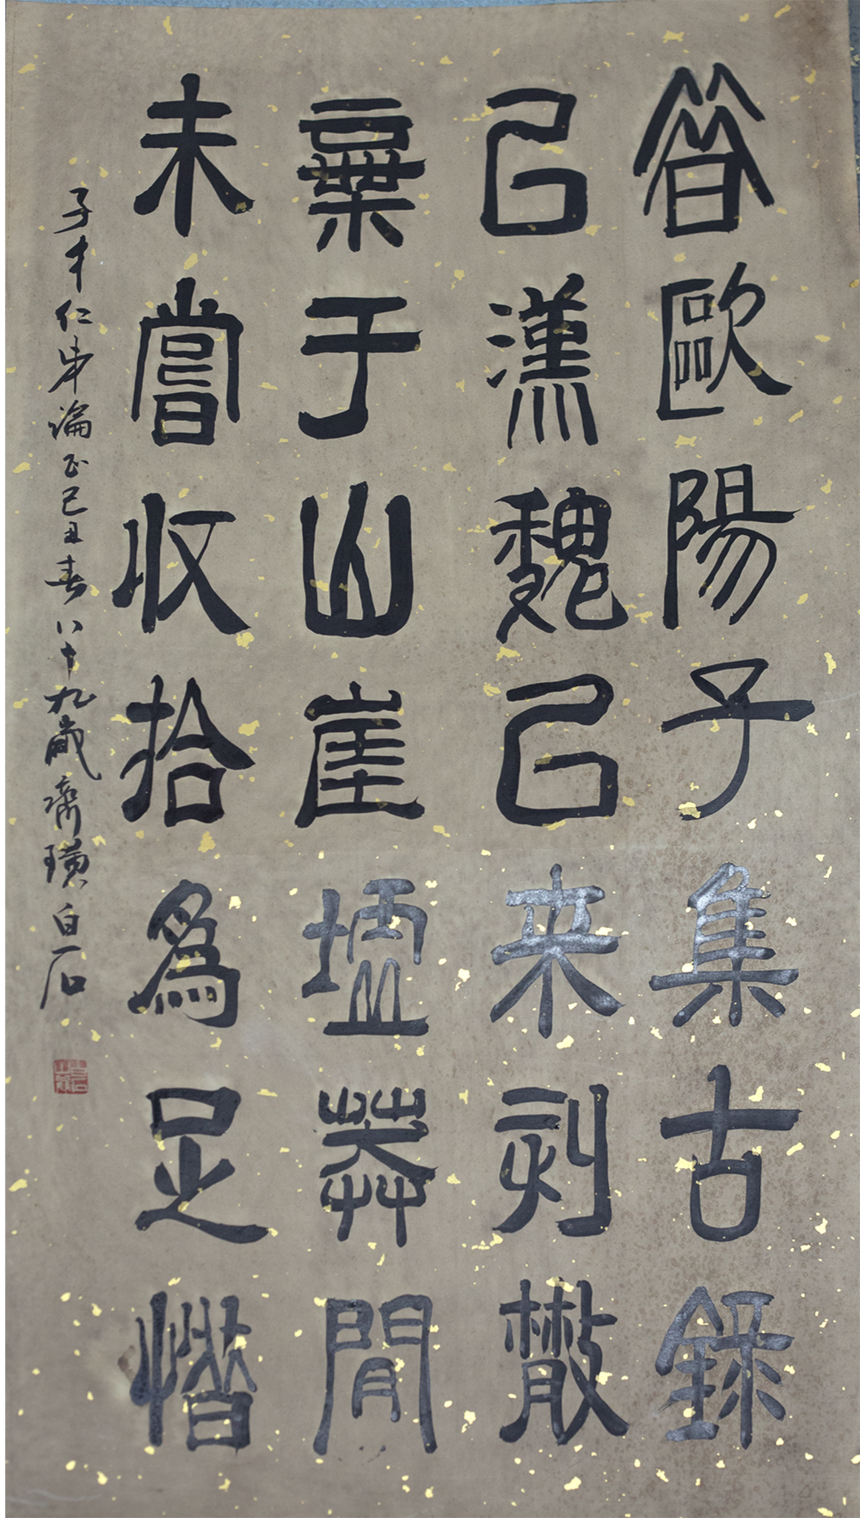 昔歐陽子集古錄
已漢魏已来刻散
棄于山崖墟莽閒
未嘗收拾爲足惜
子才仁弟論正己丑春八十九歲齊璜白石